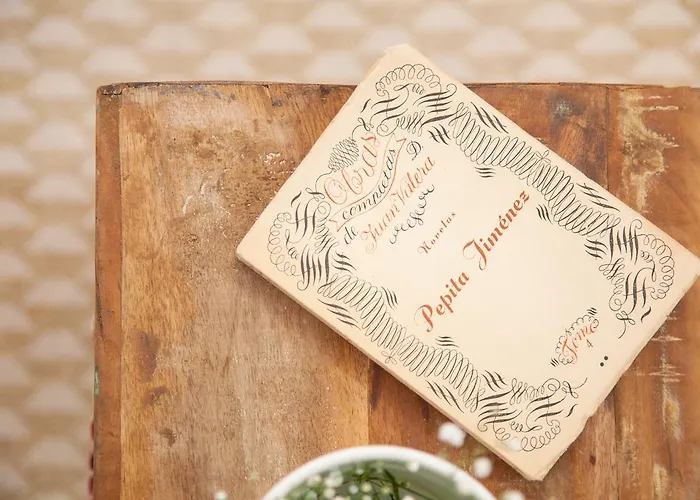 Obras
completas
de D
Juan Valera
Novelas
Pepita Jiménez
Tomo
4